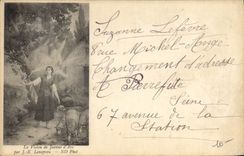 Suzanne Lefèvre
8 rue Michel-Ange
Changement d'adresse
Pierrefite
Seine
67 avenue de la
Station
La Vision de Jeanne d'Arc
par J.-E. Lenepveu - ND Phot
10-